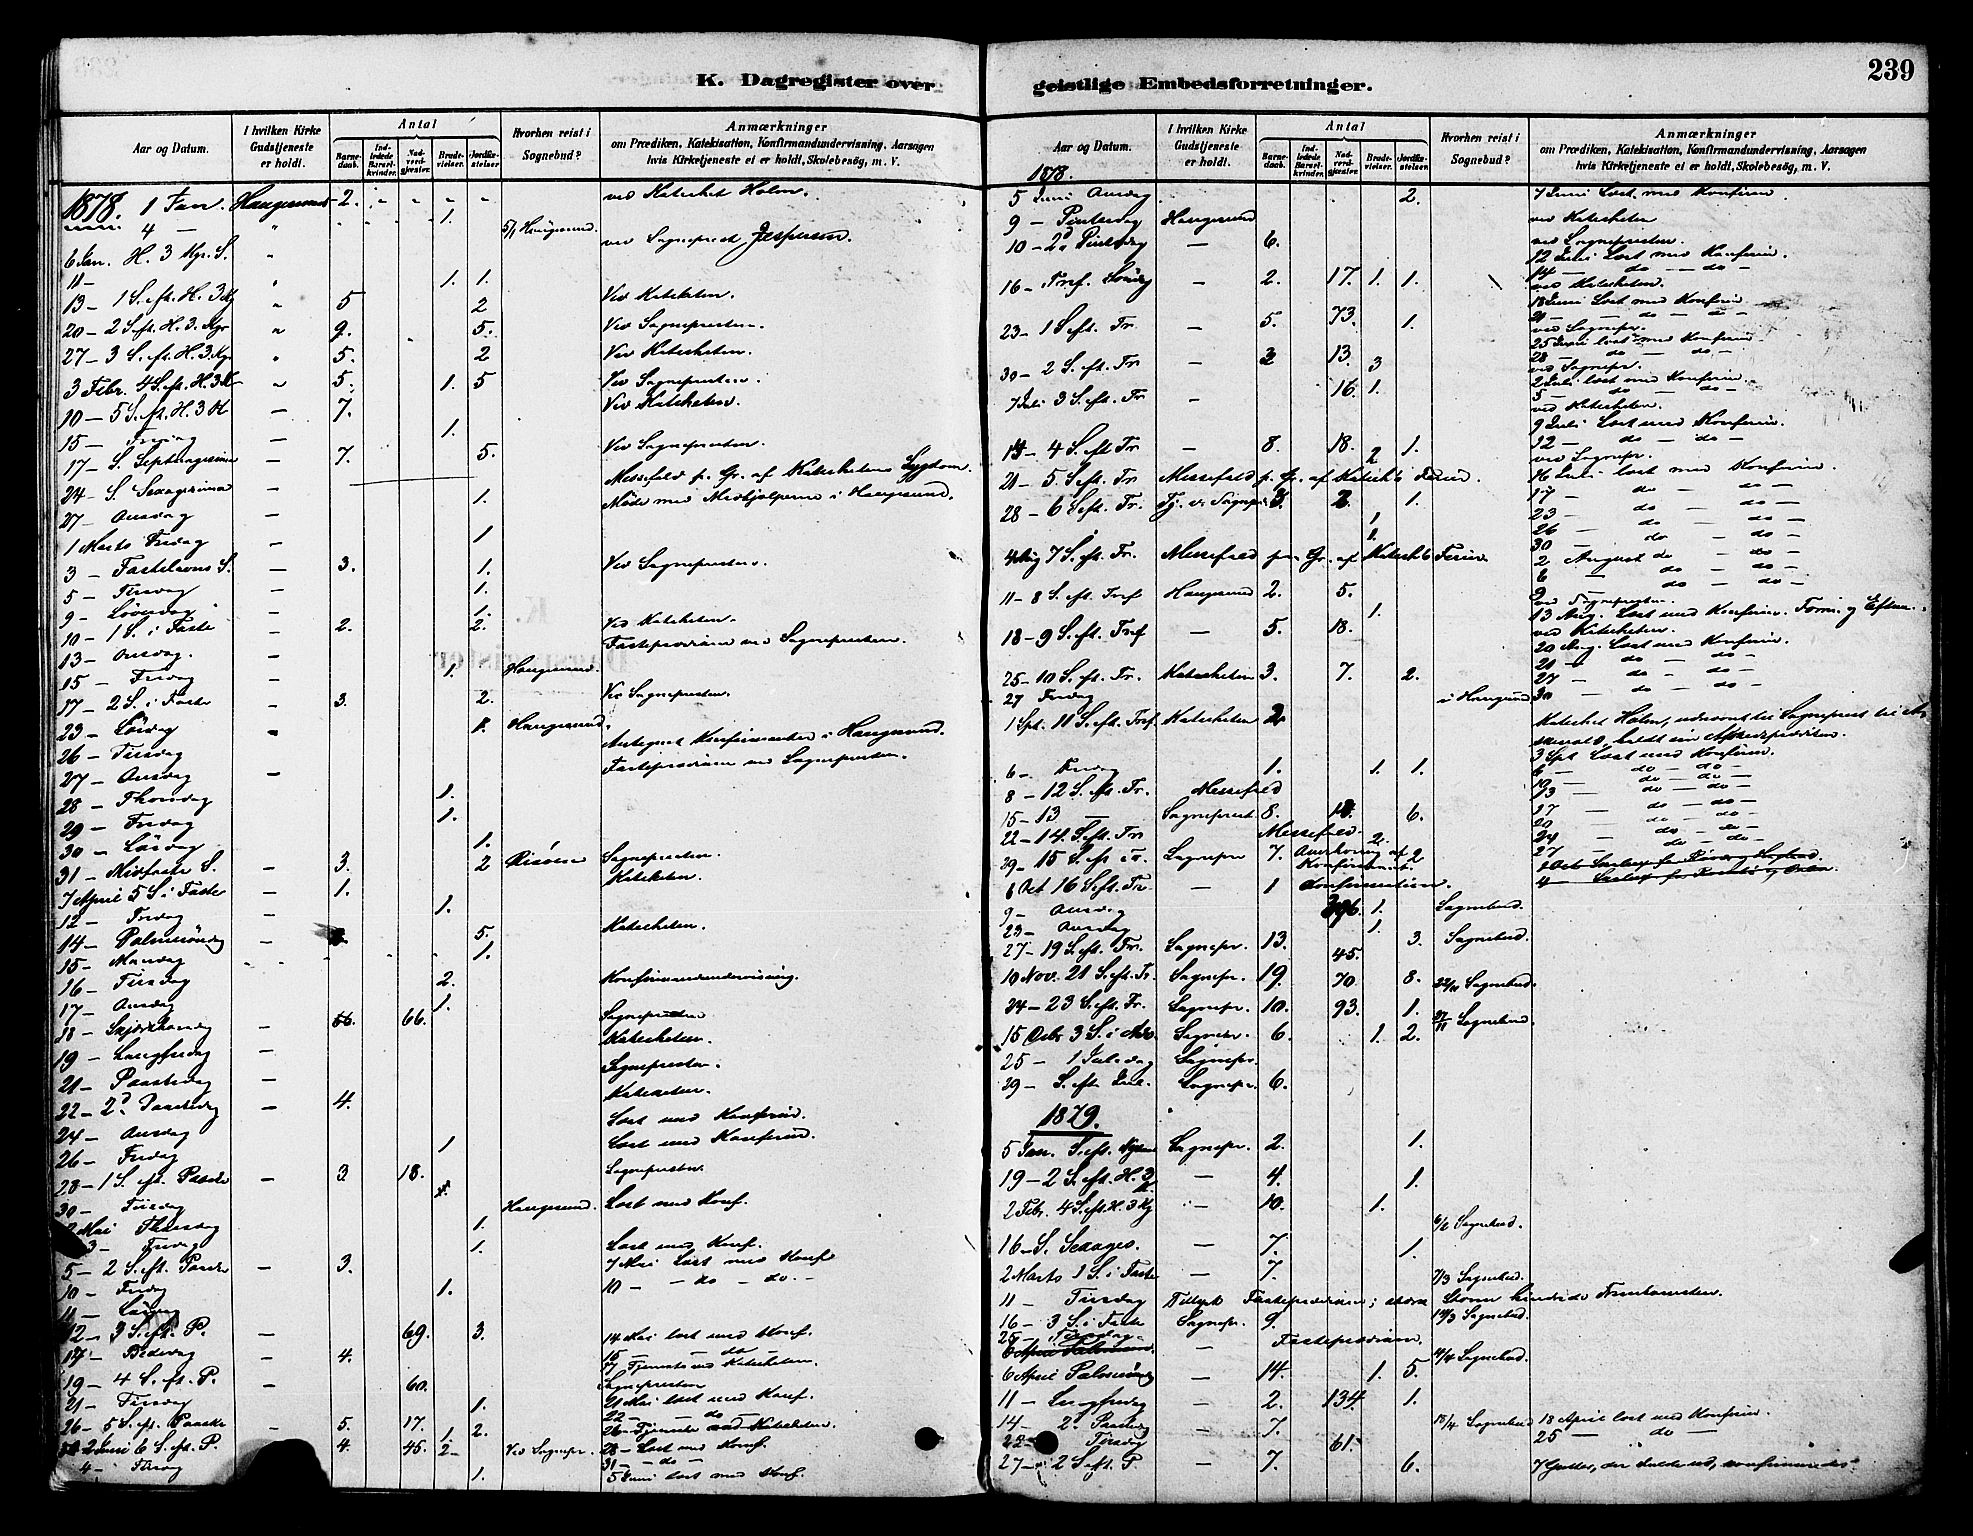 K. Dagregister over
Aar og Datum.
I hvilken Kirke Gudstjeneste er holdt.
Antal
Barnedaab.
Indledede Barselkvinder.
Nadverdgjester.
Brudevielser.
Jordfæstelser
Hvorhen reist i Sognebud?
Anmærkninger
om Prædiken, Katekisation, Konfirmandundervisning, Aarsagen
hvis Kirketjeneste ei er holdt, Skolebesög, m. V.
1878. 1 Jan. Haugesund 2. ved Katechet Holm.
4 — 1. 5/1 Haugesund.
6 Jan. H. 3 Kgr. S. ved Sognepræst Jespersen.
11 — 1. 1.
13 — 1 S. eft. H. 3 Kg 5 2 Ved Katecheten.
20 — 2 S. eft. H. 3. Kgr 9. 5. Ved Sognepresten.
27 — 3 S. eft. H. 3. Kgr. 5. 2 Ved Katecheten.
3 Febr. 4 S. eft. H. 3 K 5. 1. 5 Ved Sognepresten.
10 — 5 S. eft. H. 3 K — 7. Ved Katecheten.
15 — Fredag — 1.
17 — S. Septuagesima — 7. 5. Ved Sognepresten.
24 — S. Sexagesima — Messefald p. Gr. af Katechetens Sygdom.
27 — Onsdag — 1. Möde med Medhjelperne i Haugesund.
1 Marts Fredag — 1
3 — Fastelavns S. — 3. 1. Ved Sognepresten.
5 — Tirsdag — 1.
9 — Löverdag — 1.
10 — 1 S. i Faste 2. 2. Ved Katecheten.
13 — Onsdag. — Fasteprædiken ved Sognepresten.
15 — Fredag — 1. Haugesund.
17 — 2 S. i Faste — 3. 2. Ved Sognepresten.
23 — Lördag — 1. Haugesund.
26 — Tirsdag — Antegnet Konfirmanter i Haugesund.
27 — Onsdag — Fasteprædiken ved Sognepresten.
28 — Thorsdag 1.
29 — Fredag 1.
30 — Lördag 1.
31 — Midfaste S. — 3. 2 Risöen Sognepresten.
7 April 5 S. i Faste — 1. Katecheten.
12 — Fredag — 1.
14 — Palmesöndag — 5. Katecheten.
15 — Mandag 1.
16 — Tirsdag 2. Konfirmandundervisning.
17 — Onsdag 1.
18 — Skjærthorsdag — 66. Sognepresten
19 — Langfredag — Katecheten.
21 — Paaskedag — Sognepresten.
22 — 2d. Paaskedag — 4. Katecheten.
24 — Onsdag Læst med Konfirm.
26 — Fredag 1 Læst med Konfirm.
28 — 1 S. eft. Paaske — 3 18. Sognepresten
30 — Tirsdag Haugesund. Læst med Konf.
2 Mai Thorsdag 1.
3 — Fredag 1. Læst med Konf.
5 — 2 S. eft. Paaske — 3. 7 Mai Læst med Konf
10 — Fredag 1. 10 — — do — do. —
11 — Lördag
12 — 3 S. eft. P. — 69. 3. 14 Mai læst med Konf.
17 — Bededag — 4. 15 — — do —
17 Tjeneste ved Katecheten.
19 — 4 S. eft. P. — 60. Sognepresten
21 — Tirsdag 1. 21 Mai læst med Konf.
22 — — do —
26 — 5 S. eft. Paaske — 5. 17. 1 2. 26 — Tjeneste ved Katecheten.
2 Juni 6 S. eft. P. 4. 45. 2 — Ved Sognepr. 28 — Læst med Konf.
31 — — do —
4 — Tirsdag 1. 5 Juni læst med Konf.
geistlige Embedsforretninger.
239
Aar og Datum.
I hvilken Kirke Gudstjeneste er holdt.
Antal
Barnedaab.
Indledede Barselkvinder.
Nadverdgjester.
Brudevielser.
Jordfæstelser
Hvorhen reist i Sognebud?
Anmærkninger
om Prædiken, Katekisation, Konfirmandundervisning, Aarsagen
hvis Kirketjeneste ei er holdt, Skolebesög, m. V.
1878.
5 Juni Onsdag 2. 7 Juni Læst med Konfirm
9 — Pintsedag Haugesund ved Katecheten
10 — 2d Pintsedag — 6. ved Sognepresten.
12 Juni Læst med Konfirm.
14 — do — do —
16 — Tref. Söndag — 2. 17. 1. 1. ved Katecheten.
18 Juni Læst med Konfirm
21 — do — do —
23 — 1 S. eft. Tr. — 5. 73. 1. ved Sognepr.
25 Juni læst med Konfirm.
28 — do — do —
30 — 2 S. eft. Tr — 2 13. 3 ved Sognepr.
2 Juli læst med Konfirm.
5 — do — do
7 Juli 3 S. eft. Tr — 16. 1. ved Katecheten.
9 Juli Læst med Konfirm.
12 — do — do —
14 — 4 S. eft Tr — 8. 18. 2 1. ved Sognepr.
21 — 5 S. eft. Tr Messefald p. Gr. af Katech's Ferier. 16 Juli læst med Konfirm.
17 — do — do —
28 — 6 S. eft. Tr. Tj. v. Sognepr. 3. 2. 1. 23 — do — do —
1. 26 — do — do
1. 30 — do — do —
4 Aug 7 S. eft. Tr. Messefald paa Gr. af Katech's Ferier 2 August do — do —
6 — do — do —
11 — 8 S. eft. Tref Haugesund 2. 5. 9 —
ved Sognepresten.
1. 13 Aug. Læst med Konfirm. Form. og Efterm.
18 — 9 S. eft. Tref — 5. 18. ved Katecheten.
20 Aug. Læst med Konfirm.
21 — do — do —
25 — 10 S. eft. Tr. Katecheten 3. 7. 2. 27 — do — do —
27 Tirsdag i Haugesund 30 — do — do —
1 Spt. 11 S. eft. Tref. Katecheten 2. Katechet Holm, udnævnt til Sognepræst til
holdt sin Afskedsprædiken.
3 Spt Læst med Konfirm.
6 — Fredag 1. 1. 1. 6 — do — do —
8 — 12 S. eft. Tr. Messefald 10 — do — do —
13 — do — do —
15 — 13 — Sognepræst. 8. 18. 6. 17 — do — do —
22 — 14. S. eft. Tr Messefald. 2. 20 — do — do —
29 — 15 S. eft Tr. Sognepr 7. Overhöring af Konfirmant. 2 24 — do — do —
27 —
6 Oct 16 S. eft. Tr — 1 Konfirmation.
9 — Onsdag 396. 1. Sognebud.
23 — Onsdag 1.
27 — 19 S. eft. Tr. Sognepr. 13. 45. 3. Sognebud.
10 Nov. 21 S. eft. Tr. Sognepr. 19. 70. 8. 22/11 Sognebud.
24 — 23 S. eft. Tr. Sognepr. 10. 93. 1. 27/11 Sognebud.
15 Decbr 3 S. i Adv. Sognepr. 6. 1. 2.
25 — 1 Juledag Sognepr.
29 — S. eft. Jul. Sognepr. 6.
1879.
5 Jan. S. eft. Nytaar Sognepr. 2. 1.
19 — 2 S. eft. H. 3 K. — 4. 1.
2 Febr. 4 S. eft. H. 3 Kg — 10. 1.
6/2 Sognebud.
16 — S. Sexages. — 7. 1.
2 Marts 1 S. i Faste — 7. 7/3 Sognebud.
11 — Tirsdag Tillyst Fasteprædiken; stærk Storm hindrede Fremkomsten.
16 — 3 S. i Faste Sognepr. 9. 19/3 Sognebud.
25 — Tirsdag — Fasteprædiken.
4/4 Sognebud.
6 April Palmesöndag — 14. 1. 5.
11 — Langfredag — 2. 134. 1.
14 — 2d. Paaskedag — 7. 15/4 Sognebud 18 April læst med Konfirm.
22 — Tirsdag 61. 25 — do —
27 — 2 S. eft. P. — 7. 6. 7 Gutter, der skulde ud, konfirmeredes